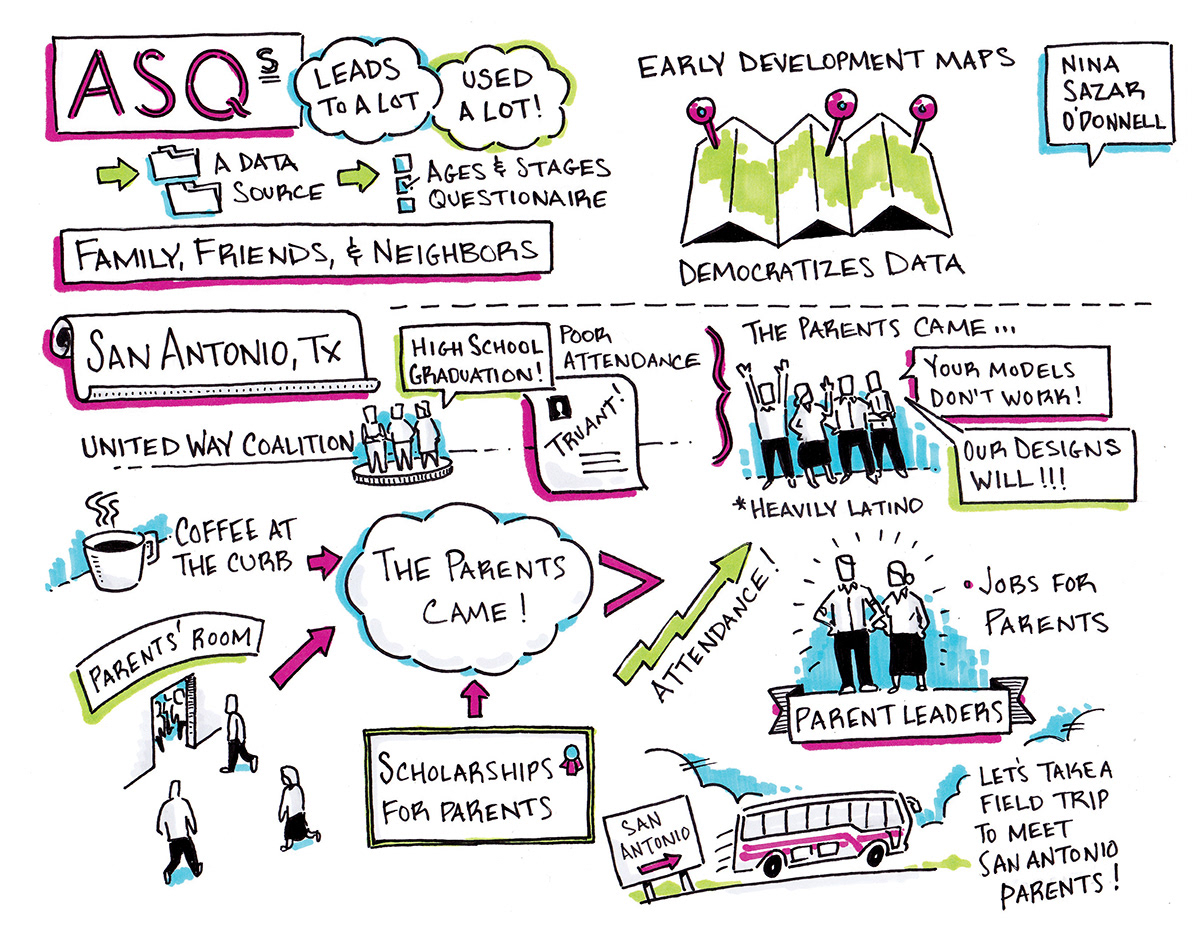 ASQs
LEADS
TO A LOT
USED
A LOT!
A DATA
SOURCE
AGES & STAGES
QUESTIONAIRE
FAMILY, FRIENDS, & NEIGHBORS
EARLY DEVELOPMENT MAPS
DEMOCRATIZES DATA
NINA
SAZAR
O'DONNELL
SAN ANTONIO, TX
UNITED WAY COALITION
HIGH SCHOOL
GRADUATION!
POOR
ATTENDANCE
TRUANT!
THE PARENTS CAME...
YOUR MODELS
DON'T WORK!
OUR DESIGNS
WILL!!!
*HEAVILY LATINO
COFFEE AT
THE CURB
PARENTS' ROOM
THE PARENTS
CAME!
SCHOLARSHIPS
FOR PARENTS
ATTENDANCE!
• JOBS FOR
PARENTS
PARENT LEADERS
SAN
ANTONIO
LET'S TAKE A
FIELD TRIP
TO MEET
SAN ANTONIO
PARENTS!